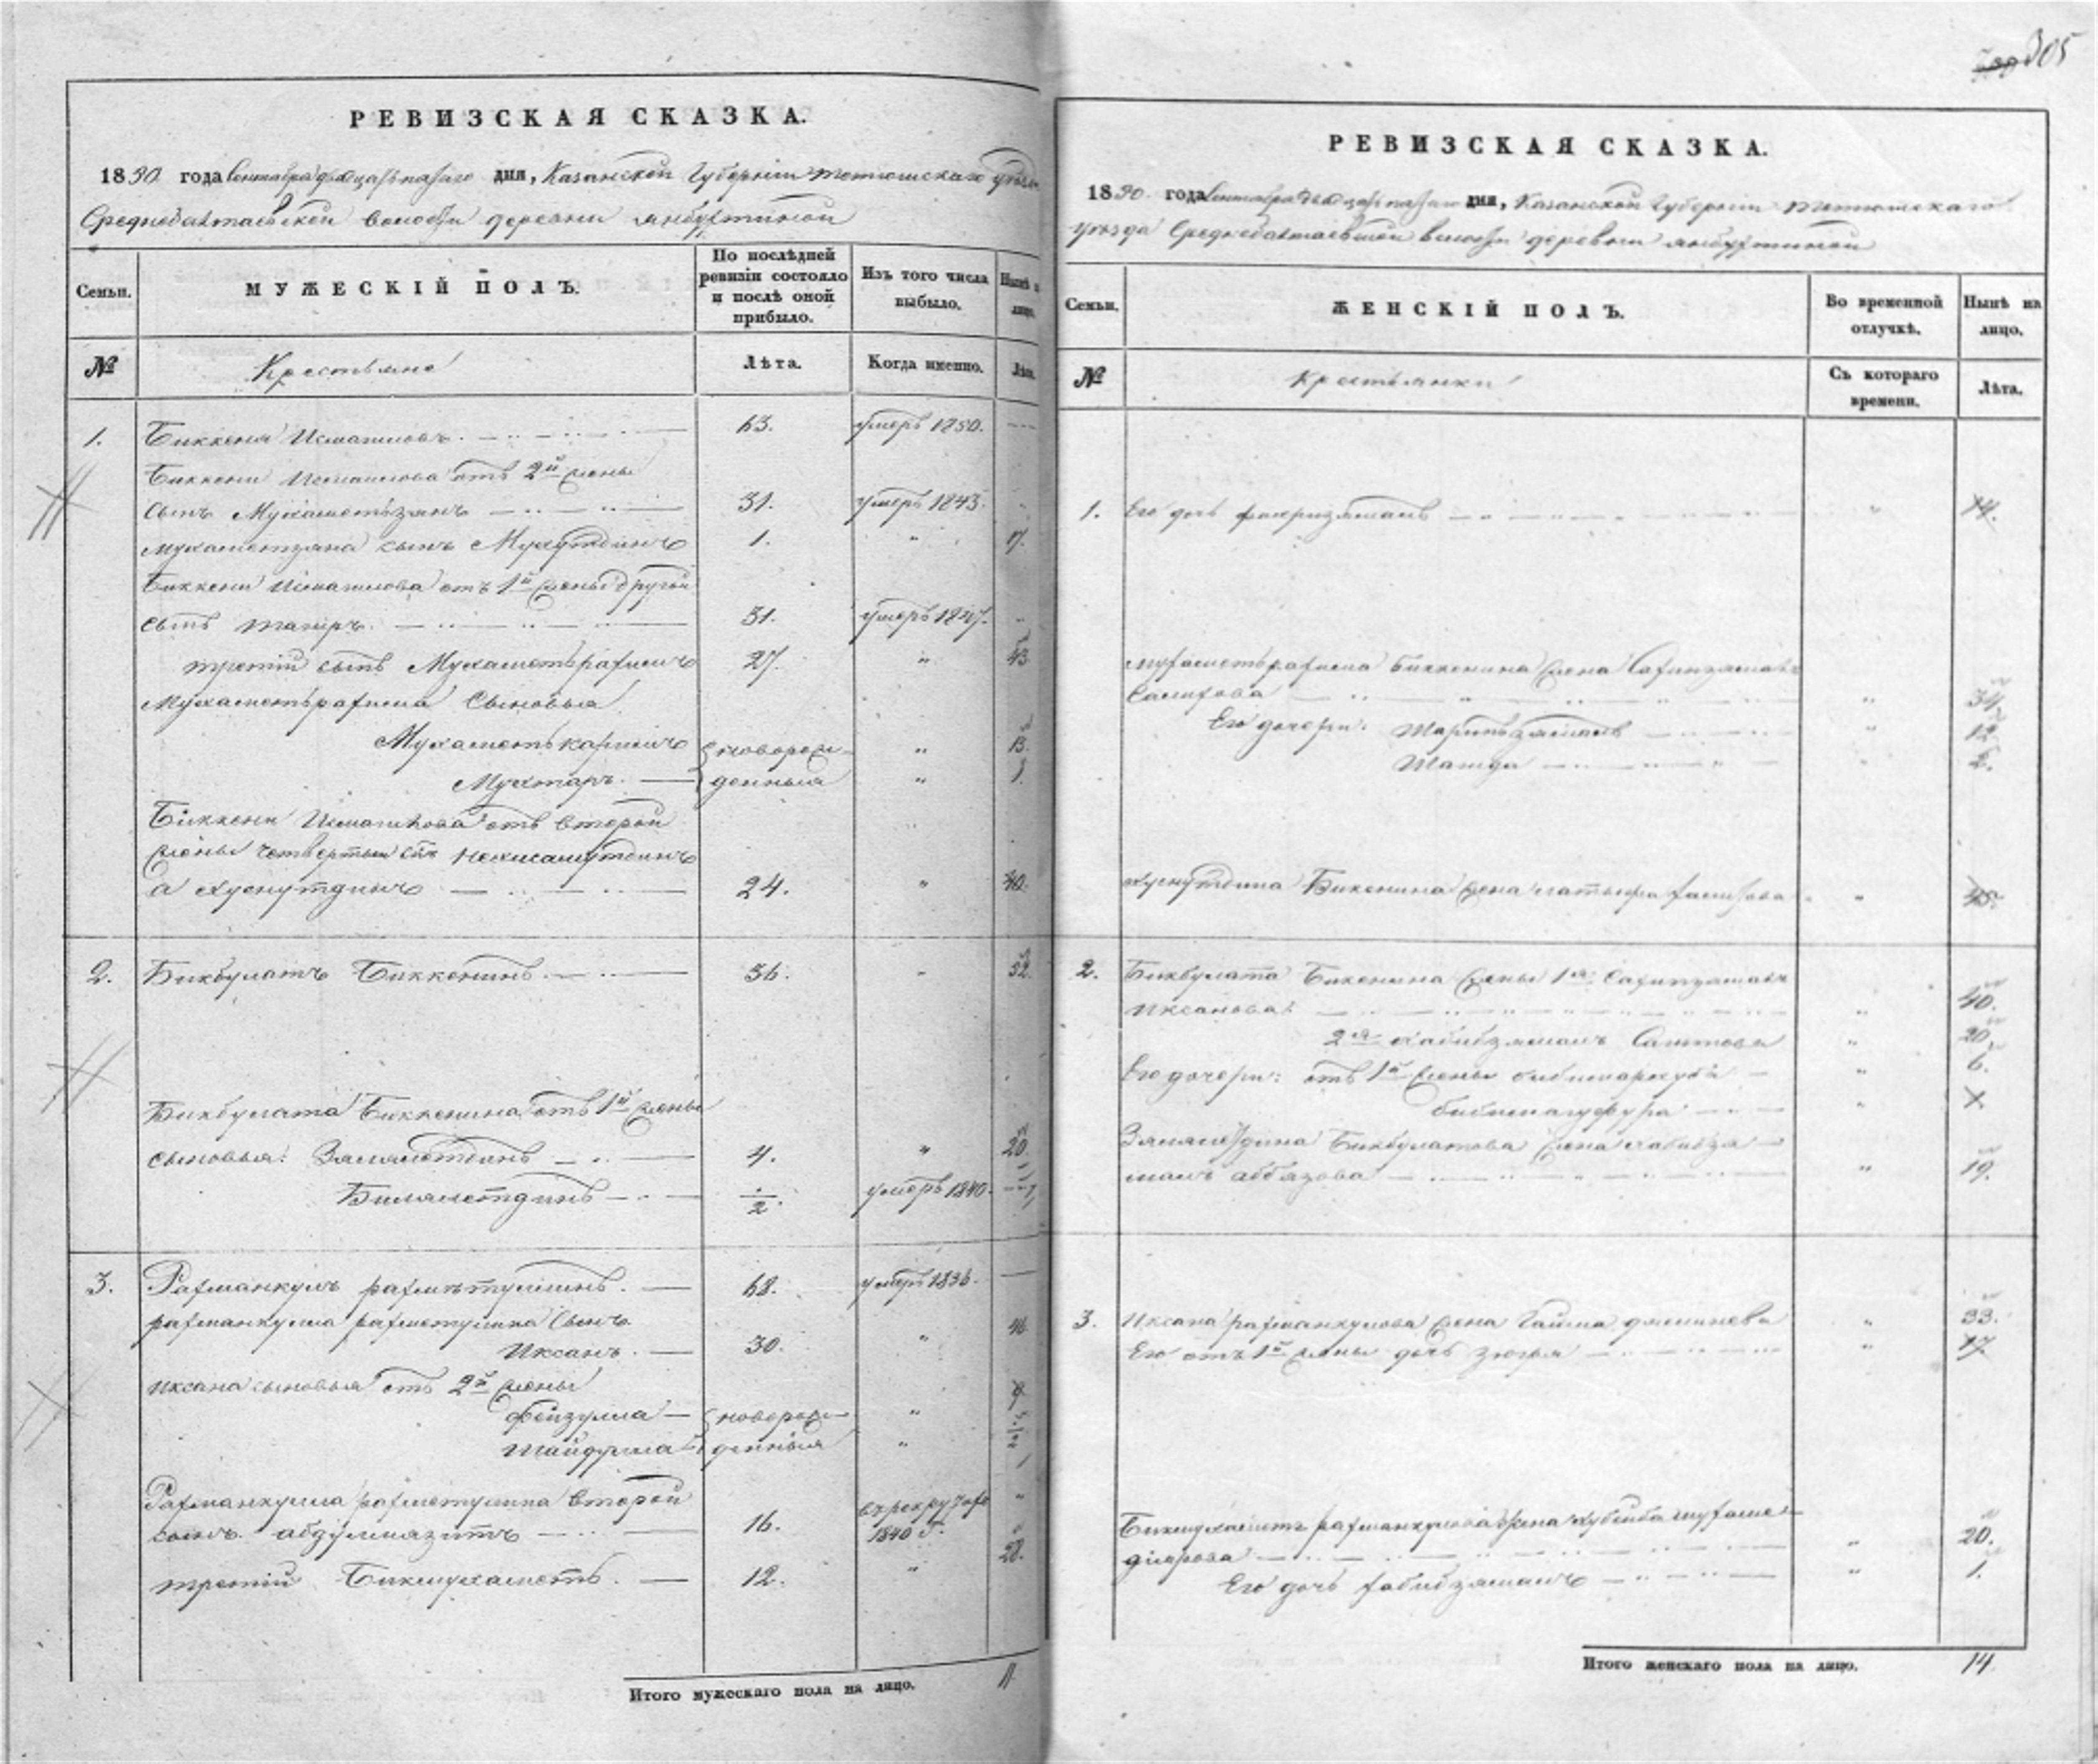 305
РЕВИЗСКАЯ СКАЗКА.
1850 года Сентября двадцатаго дня, Казанской Губернии Тетюшскаго уезда
Среднебалтаевской волости деревни
Семьи.
МУЖЕСКІЙ ПОЛЪ.
По послѣдней ревизіи состояло и послѣ оной прибыло.
Изъ того числа выбыло.
Нынѣ на лицо.
№
Крестьяне
Лѣта.
Когда именно.
Лѣта.
1. Биккеня Исмагиловъ. 63. умеръ 1850.
Биккени Исмагилова отъ 2й жены
сынъ Мухаметьзянъ 31. умеръ 1843.
Мухаметзяна сынъ 1. " 17.
Биккени Исмагилова отъ 1й жены другой
сынъ Тагиръ. 31. умеръ 1847.
третій сынъ Мухаметьрахимъ 27. " 43
Мухаметьрахима Сыновья
Мухаметькаримъ новорож- " 13.
Мухтаръ. денныя " 1.
Биккени Исмагилова отъ второй
жены четвертый сынъ
а Хуснутдинъ 24. " 40.
2. Бикбулатъ Биккенинъ. 36. 52.
Бикбулата Биккенина отъ 1й жены
сыновья: Зямалетдинъ 4. " 20.
Билялетдинъ 1/2. умеръ 1840.
3. Рахманкулъ рахметуллинъ. 68. умеръ 1836.
рахманкула рахметуллина Сынъ
Иксанъ. 30. " 46
Иксана сыновья отъ 2й жены
Фейзулла новорож- " 9
Шайдулла денныя "
Рахманкула рахметуллина второй
сынъ абдулвазитъ 16. въ рекрутахъ 1840 г.
третій Бикмухаметь. 12. " 28.
Итого мужескаго пола на лицо. 11
РЕВИЗСКАЯ СКАЗКА.
1850 года Сентября двадцатаго дня, Казанской Губерніи Тетюшскаго
уезда Среднебалтаевской волости деревни
Семьи.
ЖЕНСКІЙ ПОЛЪ.
Во временной отлучкѣ.
Нынѣ на лицо.
№
Крестьянки
Съ котораго времени.
Лѣта.
1. Его дочь фахризямалъ " 14.
Мухаметьрахима Биккенина жена Сахипзямалъ
Салихова " 34.
Его дочери: " 12
" 2.
Хуснутдина Биккенина жена " 45.
2. Бикбулата Биккенина жены 1я Сахипзямалъ
Иксанова: " 40.
2я Хабибзямалъ Саитова " 20
Его дочери: отъ 1й жены " 6.
"
Зямалетдина Бикбулатова жена Хабибзя-
малъ аббязова " 19.
3. Иксана рахманкулова жена " 33.
Его отъ 1й жены дочь " 17.
Бикмухаметя рахманкулова жена " 20.
Его дочь хабибзямалъ " 1.
Итого женскаго пола на лицо. 14